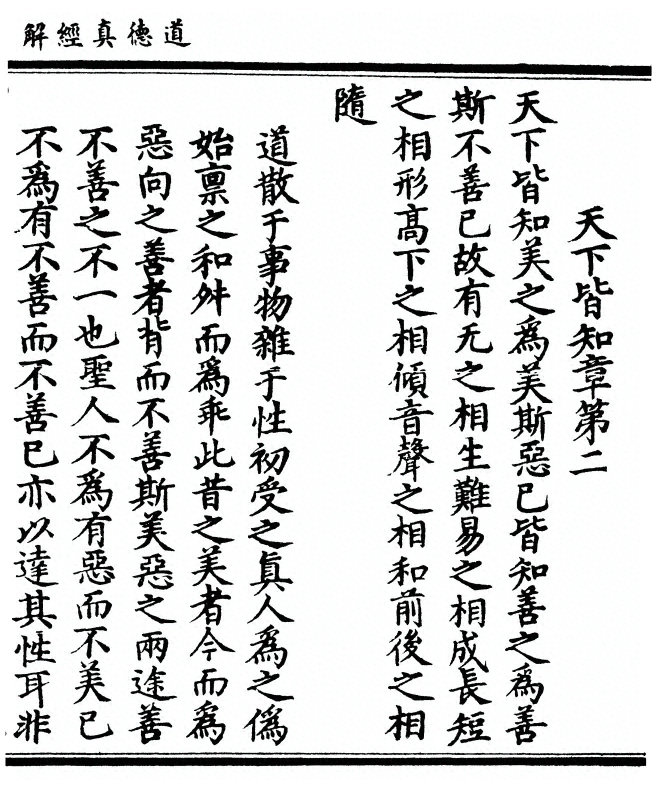 道德真經解
天下皆知章第二
天下皆知美之爲美斯惡已皆知善之爲善
斯不善已故有无之相生難易之相成長短
之相形高下之相傾音聲之相和前後之相
隨
道散于事物雜于性初受之眞人爲之僞
始禀之和舛而爲乖此昔之美者今而爲
惡向之善者背而不善斯美惡之兩途善
不善之不一也聖人不爲有惡而不美已
不爲有不善而不善已亦以達其性耳非